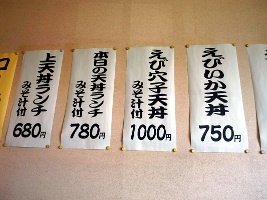 えびいか天丼
750円
えび穴子天丼
みそ汁付
1000円
本日の天丼ランチ
みそ汁付
780円
上天丼ランチ
みそ汁付
680円